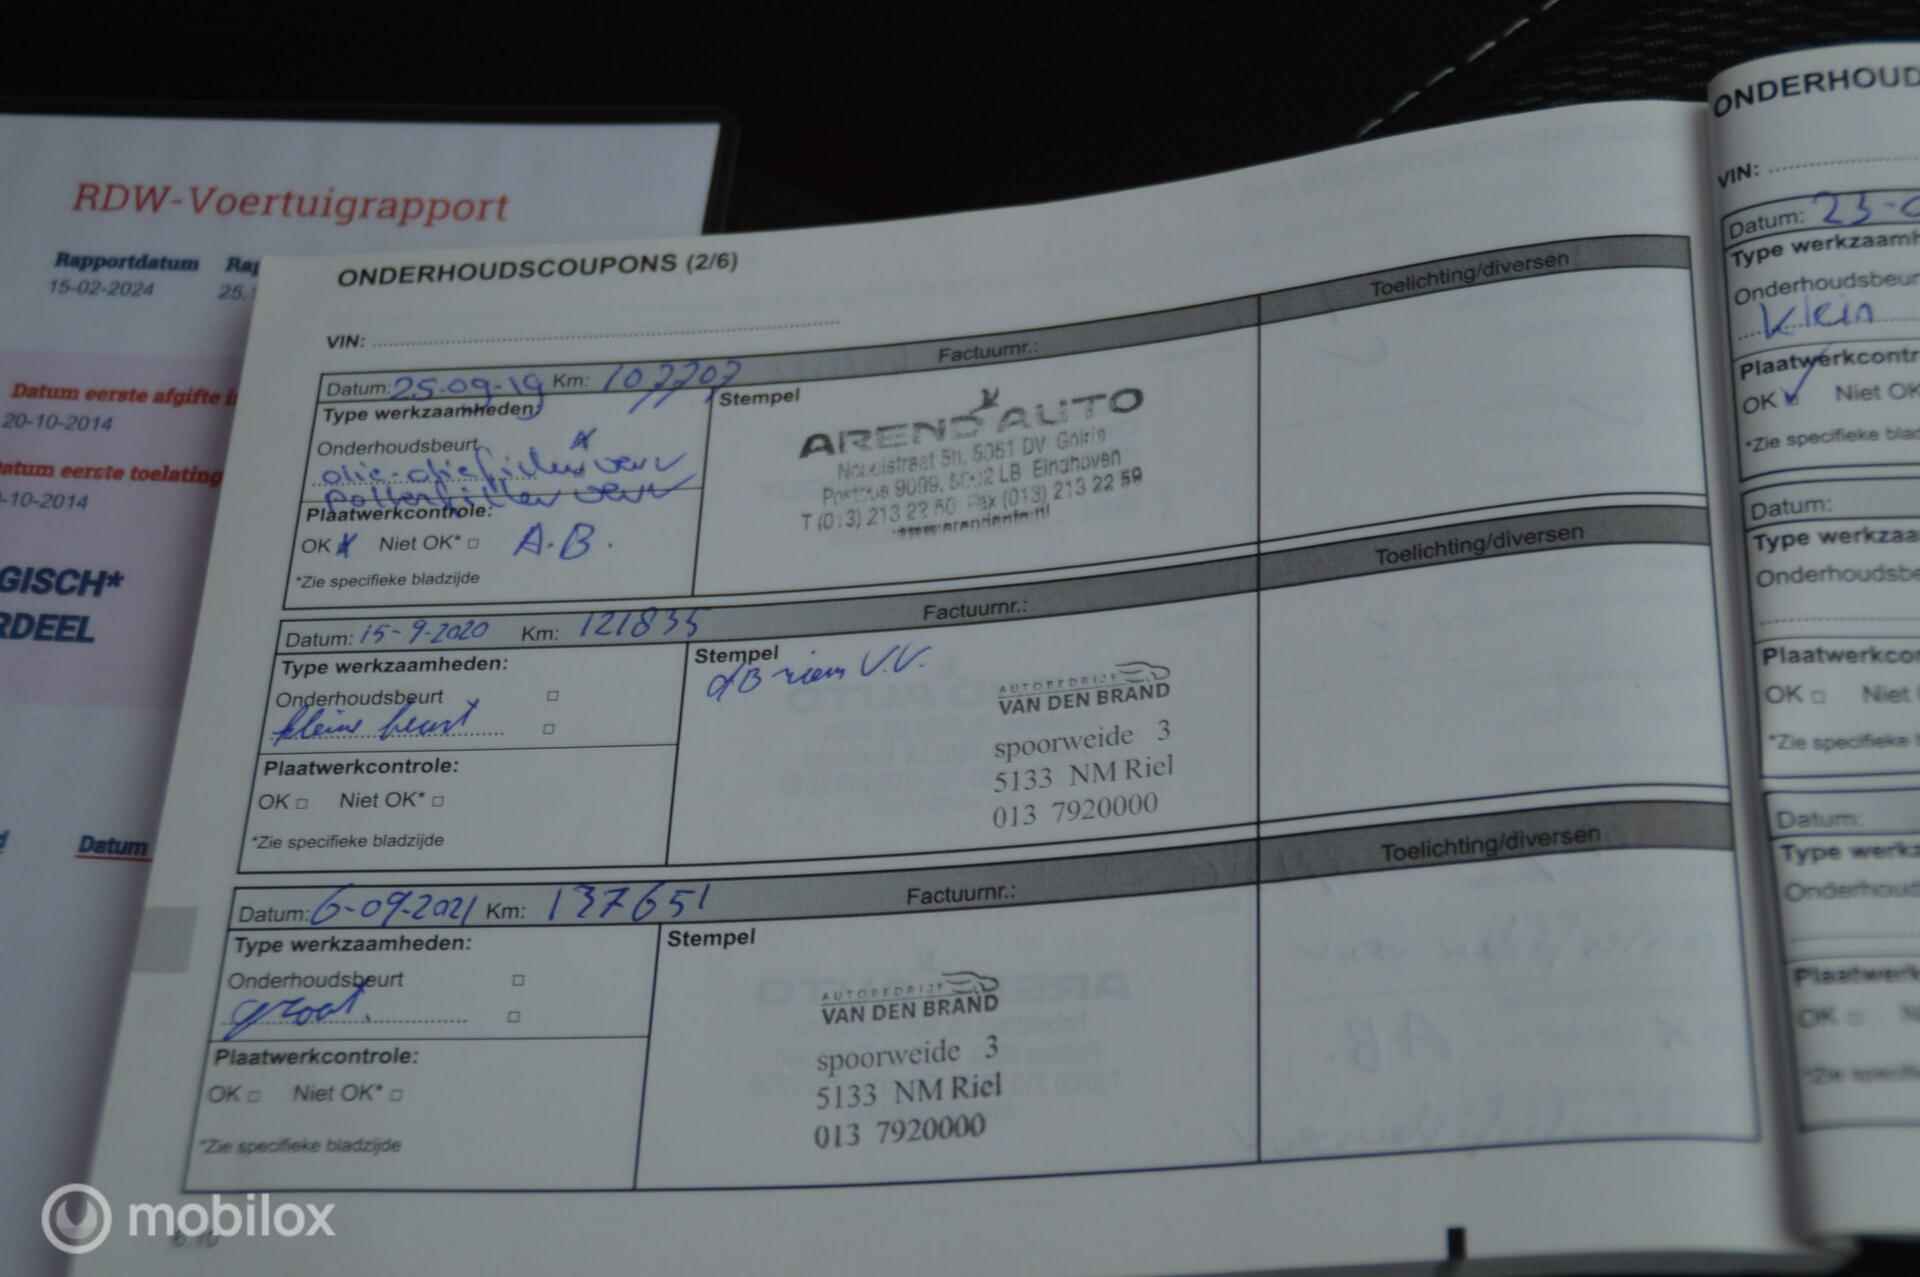 RDW-Voertuigrapport
Rapportdatum
15-02-2024
25.
Datum eerste afgifte
20-10-2014
Datum eerste toelating
-10-2014
GISCH*
RDEEL
Datum
ONDERHOUDSCOUPONS (2/6)
VIN:
Datum: 25-09-19 Km: 107707 Factuurnr.: Toelichting/diversen
Type werkzaamheden:
Stempel
Onderhoudsbeurt
olie-oliefilter verv
pollenfilter verv
Plaatwerkcontrole:
OK Niet OK* A.B.
*Zie specifieke bladzijde
AREND AUTO
5051 DV Goirle
LB Eindhoven
T (013) 213 22 50 Fax (013) 213 22 59
Datum: 15-9-2020 Km: 121835 Factuurnr.: Toelichting/diversen
Type werkzaamheden:
Stempel
V.V.
Onderhoudsbeurt
kleine beurt
Plaatwerkcontrole:
OK Niet OK*
*Zie specifieke bladzijde
AUTOBEDRIJF
VAN DEN BRAND
spoorweide 3
5133 NM Riel
013 7920000
Datum: 6-09-2021 Km: 137651 Factuurnr.: Toelichting/diversen
Type werkzaamheden:
Stempel
Onderhoudsbeurt
groot
Plaatwerkcontrole:
OK Niet OK*
*Zie specifieke bladzijde
AUTOBEDRIJF
VAN DEN BRAND
spoorweide 3
5133 NM Riel
013 7920000
ONDERHOUD
VIN:
Datum: 23-0
Type werkzaamh
Onderhoudsbeur
Klein
Plaatwerkcontr
OK Niet OK
*Zie specifieke blad
Datum:
Type werkzaa
Onderhoudsbe
Plaatwerkco
OK Niet
*Zie specifieke
Datum:
Type werkz
Onderhoud
Plaatwerk
OK N
*Zie specifi
mobilox